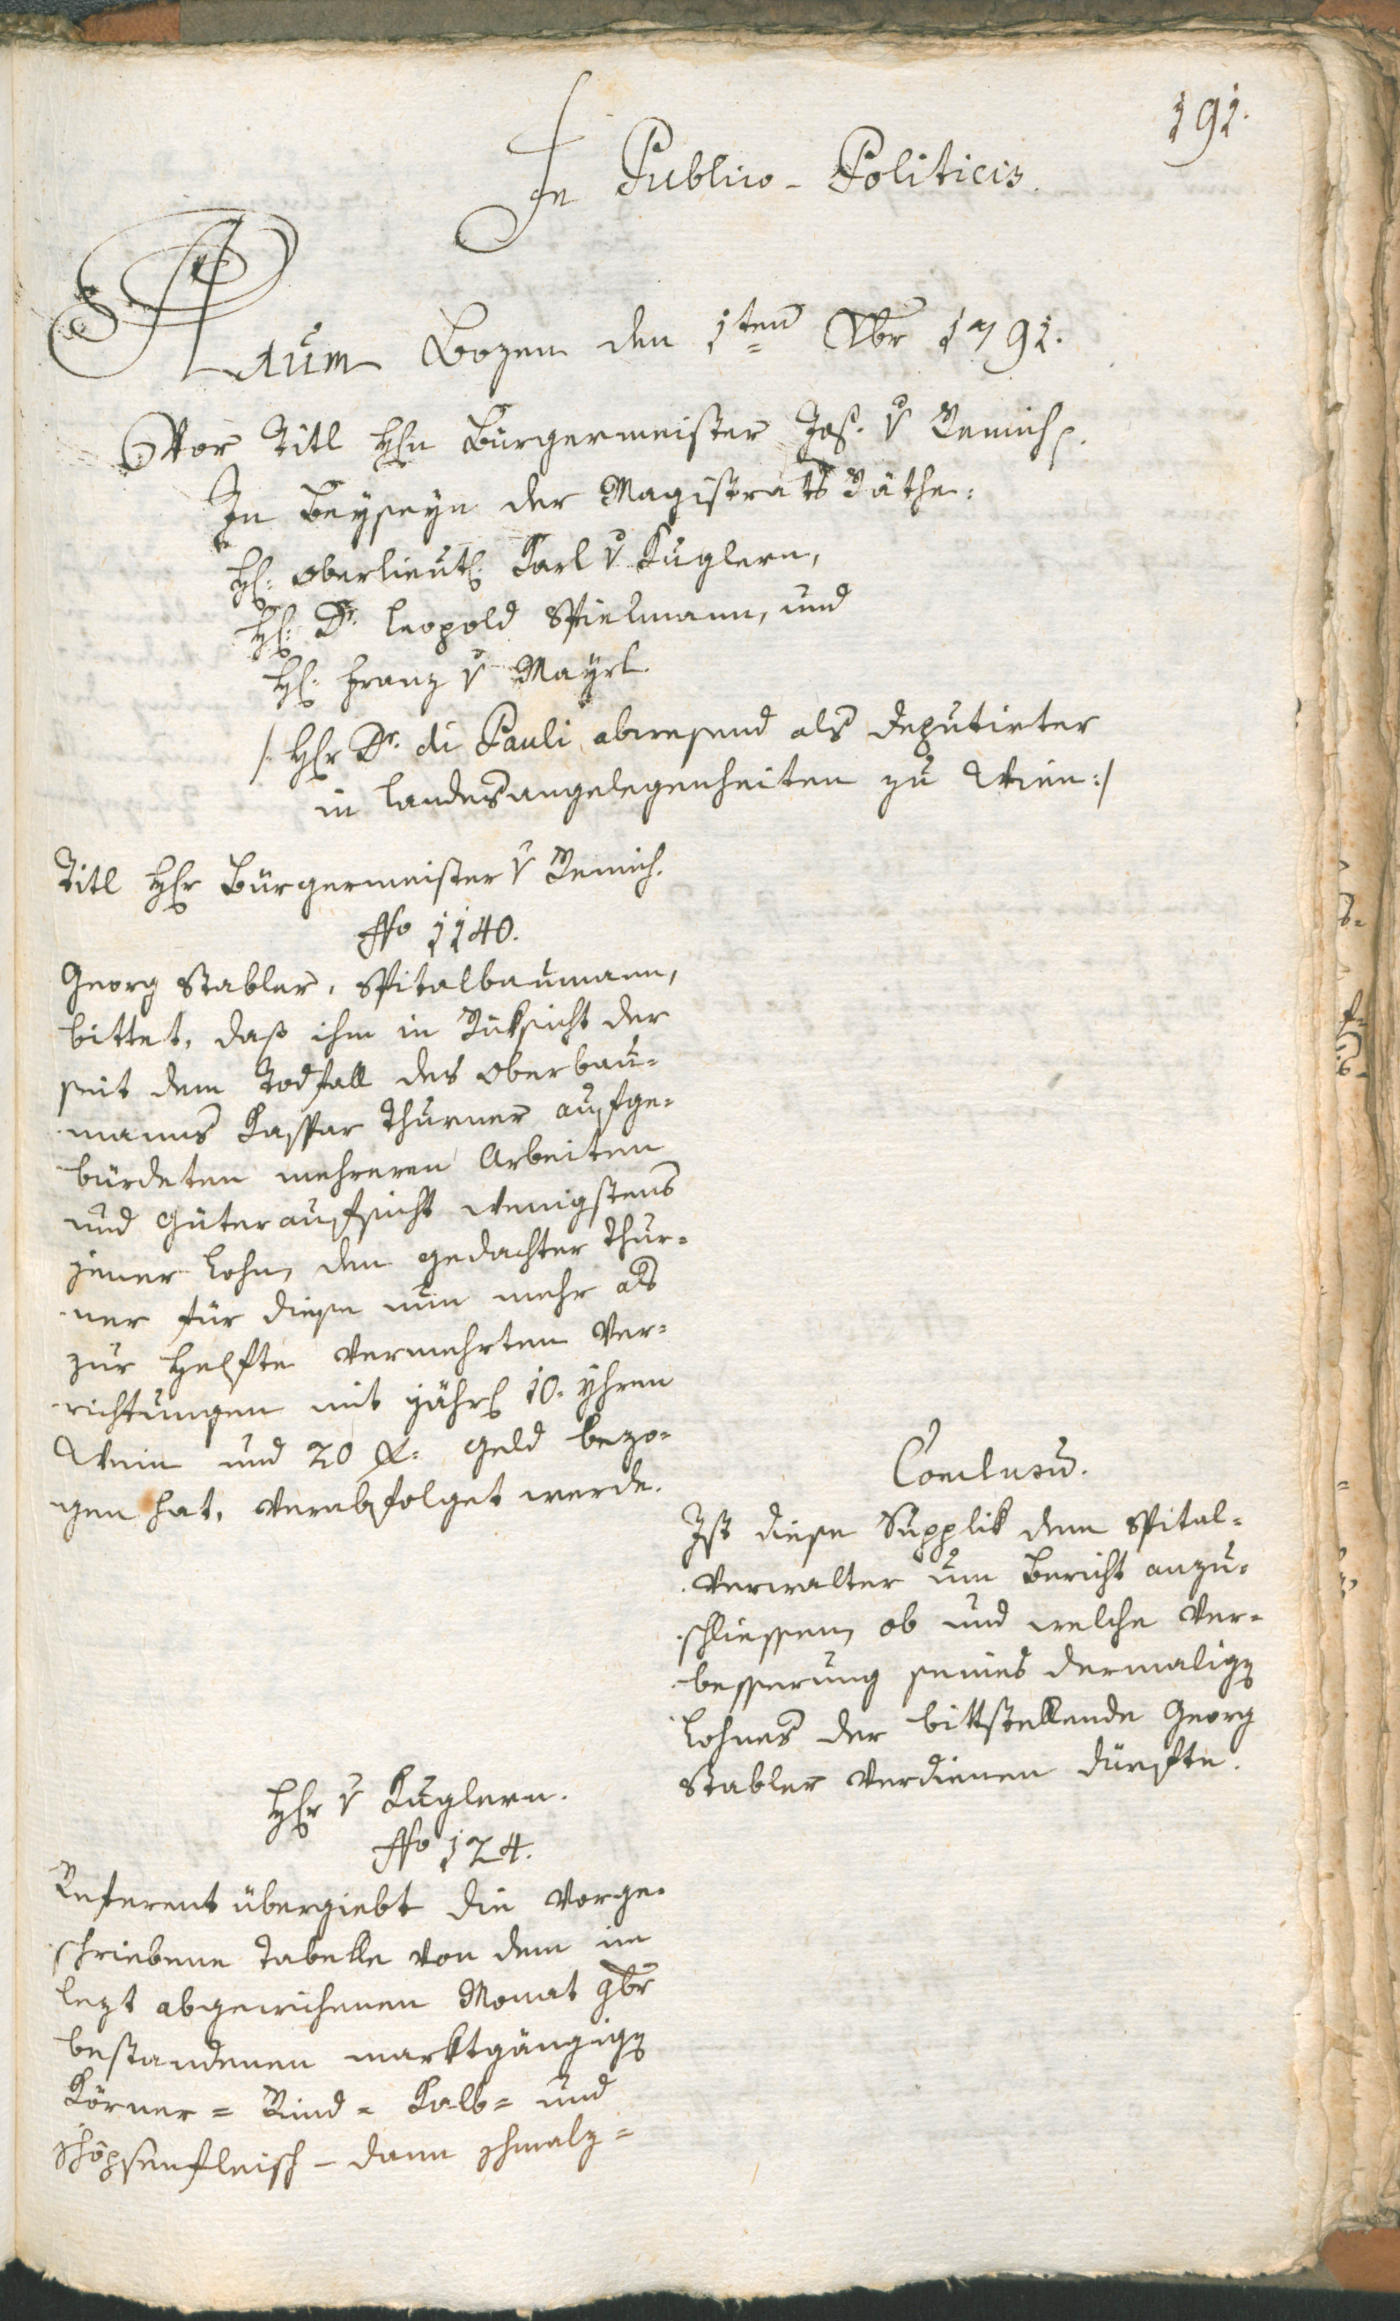 191.
In Publico-Politicis.
Actum Bozen den 1ten Xbr 1791.
Vor Titl Hℏn Bürgermeister Jos. v Remich p.
In Beyseyn der Magistrats Räthe:
H: Oberlieut: Karl v Kuglern,
H: Dr. Leopold Spielmann, und
H: Franz v Mayrl.
/: Hℏr Dr. di Pauli abwesend als Deputirter
in Landesangelegenheiten zu Wien :/
Titl Hℏr Bürgermeister v Remich.
Nro 1140.
Georg Stabler, Spitalbaumann,
bittet, daß ihm in Rüksicht der
seit dem Todfall des Oberbau-
manns Kaspar Thurner aufge-
bürdeten mehreren Arbeiten
und Güteraufsicht wenigstens
jener Lohn, den gedachter Thur-
ner für diese nun mehr als
zur Helfte vermehrten Ver-
richtungen mit jährl 10. Yhren
Wein und 20 fl: Geld bezo-
gen hat, verabfolget werde.
Conclusū.
Ist diese Supplik dem Spital-
verwalter um Bericht anzu-
schliessen, ob und welche Ver-
besserung seines dermalig
Lohnes der bittstellende Georg
Stabler verdienen dürfte.
Hℏr v Kuglern.
Nro 124.
Referent übergiebt die vorge-
schriebene Tabelle von dem im
lezt abgewichenen Monat 9br
bestandenen marktgängig
Körner = Rind = Kalb = und
Schöpsenfleisch – dann Schmalz =